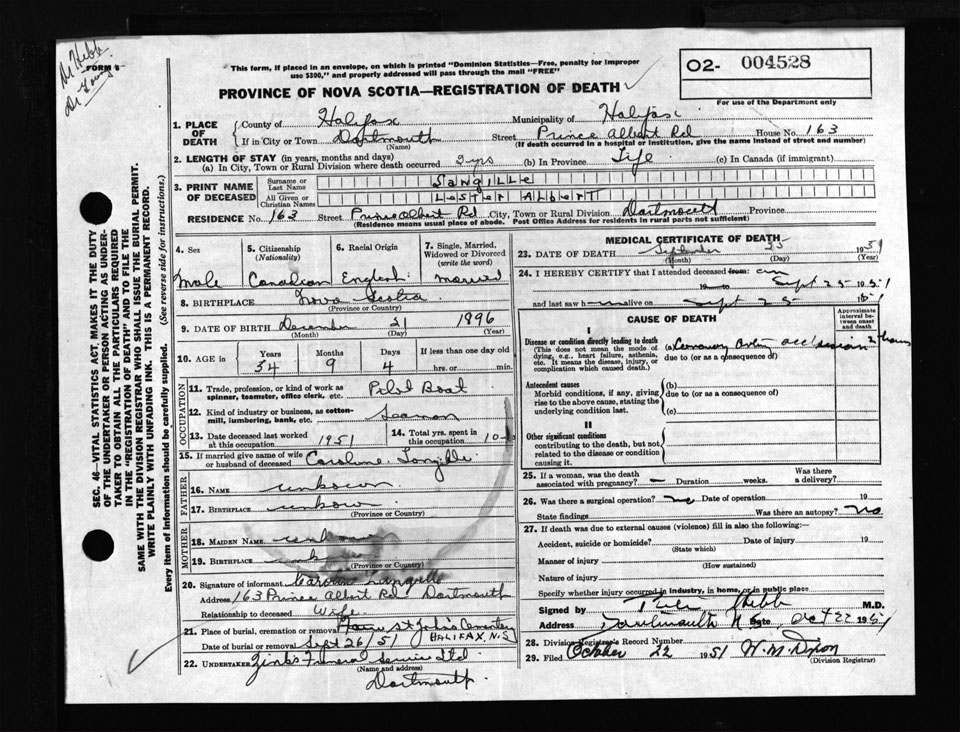 Dr Hebb.
Dr Young
FORM 6
This form, if placed in an envelope, on which is printed "Dominion Statistics—Free, penalty for improper
use $300," and properly addressed will pass through the mail "FREE"
PROVINCE OF NOVA SCOTIA—REGISTRATION OF DEATH
O2- 004528
For use of the Department only
1. PLACE OF DEATH
County of Halifax Municipality of Halifax
If in City or Town Dartmouth Street Prince Albert Rd House No. 163
(Name) (If death occurred in a hospital or institution, give the name instead of street and number)
2. LENGTH OF STAY (in years, months and days)
(a) In City, Town or Rural Division where death occurred 2 yrs (b) In Province Life (c) In Canada (if immigrant)
3. PRINT NAME OF DECEASED
Surname or Last Name LANGILLE
All Given or Christian Names LESTER ALBERT
RESIDENCE No. 163 Street Prince Albert Rd City, Town or Rural Division Dartmouth Province
(Residence means usual place of abode. Post Office Address for residents in rural parts not sufficient)
4. Sex
Male
5. Citizenship
(Nationality)
Canadian
6. Racial Origin
English
7. Single, Married, Widowed or Divorced
(write the word)
married
8. BIRTHPLACE Nova Scotia
(Province or Country)
9. DATE OF BIRTH December 21 1896
(Month) (Day) (Year)
10. AGE in
Years Months Days If less than one day old
54 9 4 hrs. or min.
OCCUPATION
11. Trade, profession, or kind of work as
spinner, teamster, office clerk, etc. Pilot Boat
12. Kind of industry or business, as cotton-
mill, lumbering, bank, etc. Seaman
13. Date deceased last worked
at this occupation 1951
14. Total yrs. spent in
this occupation 10
15. If married give name of wife
or husband of deceased Caroline Langille
FATHER
16. NAME unknown
17. BIRTHPLACE unknown
(Province or Country)
MOTHER
18. MAIDEN NAME unknown
19. BIRTHPLACE
(Province or Country)
20. Signature of informant Langille
Address 163 Prince Albert Rd Dartmouth
Relationship to deceased Wife
21. Place of burial, cremation or removal St John's Cemetery
Date of burial or removal Sept 26/51 HALIFAX, N.S.
22. UNDERTAKER Zink's Funeral Service Ltd
(Name and address)
Dartmouth.
MEDICAL CERTIFICATE OF DEATH
23. DATE OF DEATH September 25 1951
(Month) (Day) (Year)
24. I HEREBY CERTIFY that I attended deceased from: on
to Sept 25 1951
and last saw h alive on Sept 25 1951
CAUSE OF DEATH
Approximate interval between onset and death
I
Disease or condition directly leading to death
(This does not mean the mode of
dying, e.g., heart failure, asthenia,
etc. It means the disease, injury, or
complication which caused death.)
(a) Coronary occlusion 2 hours
due to (or as a consequence of)
Antecedent causes
Morbid conditions, if any, giving
rise to the above cause, stating the
underlying condition last.
(b)
due to (or as a consequence of)
(c)
II
Other significant conditions
contributing to the death, but not
related to the disease or condition
causing it.
25. If a woman, was the death
associated with pregnancy? — Duration weeks. Was there
a delivery?
26. Was there a surgical operation? no Date of operation 19
State findings Was there an autopsy? No
27. If death was due to external causes (violence) fill in also the following:—
Accident, suicide or homicide? Date of injury 19
(State which)
Manner of injury
(How sustained)
Nature of injury
Specify whether injury occurred in industry, in home, or in public place
Signed by Hebb M.D.
Address Dartmouth N S Date Oct 22 1951
28. Division Registrar's Record Number
29. Filed October 22 1951 W. M. Dixon
(Division Registrar)
SEC. 46—VITAL STATISTICS ACT MAKES IT THE DUTY
OF THE UNDERTAKER OR PERSON ACTING AS UNDER-
TAKER TO OBTAIN ALL THE PARTICULARS REQUIRED
IN THE "REGISTRATION OF DEATH" AND TO FILE THE
SAME WITH THE DIVISION REGISTRAR WHO SHALL ISSUE THE BURIAL PERMIT.
WRITE PLAINLY WITH UNFADING INK. THIS IS A PERMANENT RECORD.
Every item of Information should be carefully supplied. (See reverse side for instructions.)